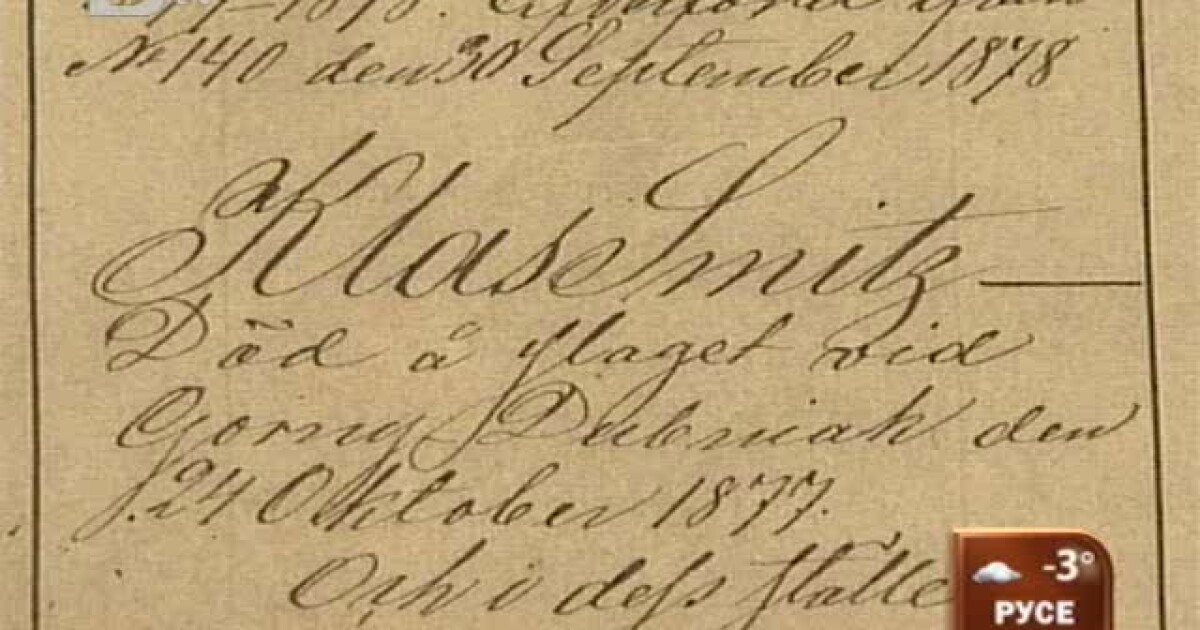 1877-1878.
№ 140 den 30 September 1878
Klas Smitz
Död å slaget vid
Gorny Dubniak den
24 Oktober 1877.
Och i dess ställe
-3°
РУСЕ